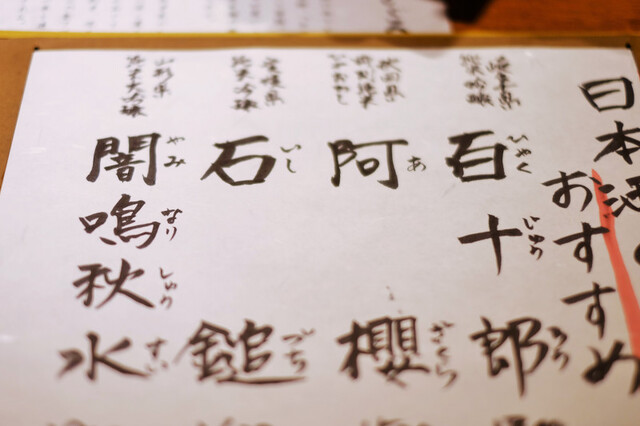 日本酒の
おすすめ
岐阜県
純米吟醸
百十郎
ひゃくじゅうろう
秋田県
特別純米
ひやおろし
阿櫻
あざくら
愛媛県
純米吟醸
石鎚
いしづち
山形県
純米大吟醸
闇鳴秋水
やみなりしゅうすい